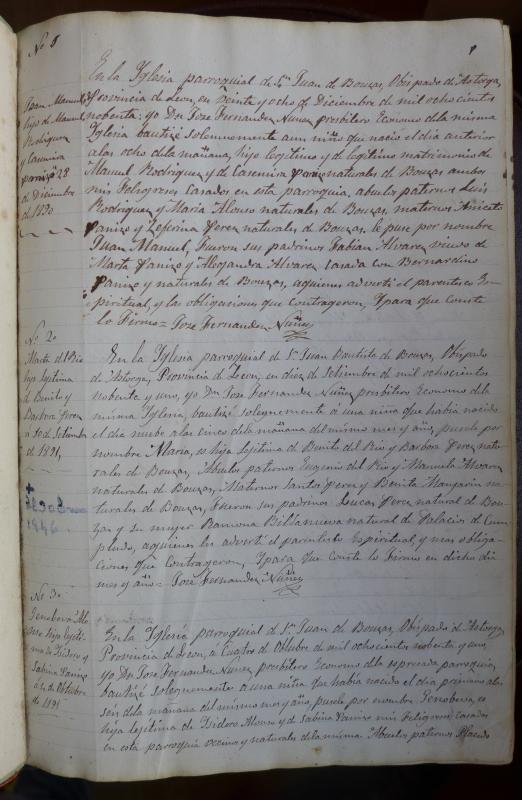 No 1
Juan Manuel,
hijo de Manuel
Rodriguez
y Casemira
Panizo 28
de Diciembre
de 1890
En la Yglesia parroquial de Sn Juan de Bouzas, Obispado de Astorga,
Provincia de Leon, en veinte y ocho de Diciembre de mil ochocientos
nobenta: yo Dn Jose Fernandez Nuñez presbitero Economo de la misma
Yglesia bautizé solennemente a un niño que nació el dia anterior
a las ocho de la mañana, hijo legitimo y de legitimo matrimonio de
Manuel Rodriguez y de Casemira Panizo naturales de Bouzas ambos
mis feligreses casados en esta parroquia, abuelos paternos Luis
Rodriguez y Maria Alonso naturales de Bouzas, maternos Aniceto
Panizo y Zeferina Perez naturales de Bouzas, le puse por nombre
Juan Manuel, fueron sus padrinos Fabian Alvarez viudo de
Marta Panizo y Alejandra Alvarez casada con Bernardino
Panizo y naturales de Bouzas, a quienes advertí el parentesco Es-
piritual, y las obligaciones que contrageron, Y para que conste
lo Firmo = Jose Fernandez Nuñez
No 2o
Maria del Rio
hija legitima
de Benito y
Barbora Perez
a 10 de Setiembre
de 1891,
En la Yglesia parroquial de Sn Juan Bautista de Bouzas, Obispado
de Astorga, Provincia de Leon, en diez de Setiembre de mil ochocientos
nobenta y uno, yo Dn Jose Fernandez Nuñez presbitero Economo de la
misma Yglesia, bautizé solegnemente a una niña que habia nacido
el dia nuebe a las cinco de la mañana del mismo mes y año, puse le por
nombre Maria, es hija legitima de Benito del Rio y Barbora Perez natu-
rales de Bouzas, Abuelos paternos Eugenio del Rio y Manuela Alvarez
naturales de Bouzas, Maternos Santos Perez y Benita Manjarin na-
turales de Bouzas, fueron sus padrinos Lucas Perez natural de Bou-
zas y su mujer Ramona Billanueva natural de Palacios de Com-
pludo, a quienes les advertí el parentesco Espiritual y mas obliga-
ciones que contrageron, Y para que conste lo Firmo en dicho dia
mes y año = Jose Fernandez Nuñez
No 3o
Genobeva Alo
hija legiti-
ma de Isidoro y
Sabina Panizo
a 4 de Octubre
de 1891
En la Yglesia parroquial de Sn Juan de Bouzas, Obispado de Astorga,
Provincia de Leon, a cuatro de Octubre de mil ochocientos nobenta y uno,
yo Dn Jose Fernandez Nuñez presbitero Economo de la espresada parroquia,
bautizé solegnemente a una niña que habia nacido el dia primero a las
seis de la mañana del mismo mes y año, puse le por nombre Genobeva, es
hija legitima de Isidoro Alonso y de Sabina Panizo mis feligreses casados
en esta parroquia vecinos y naturales de la misma Abuelos paternos Placido